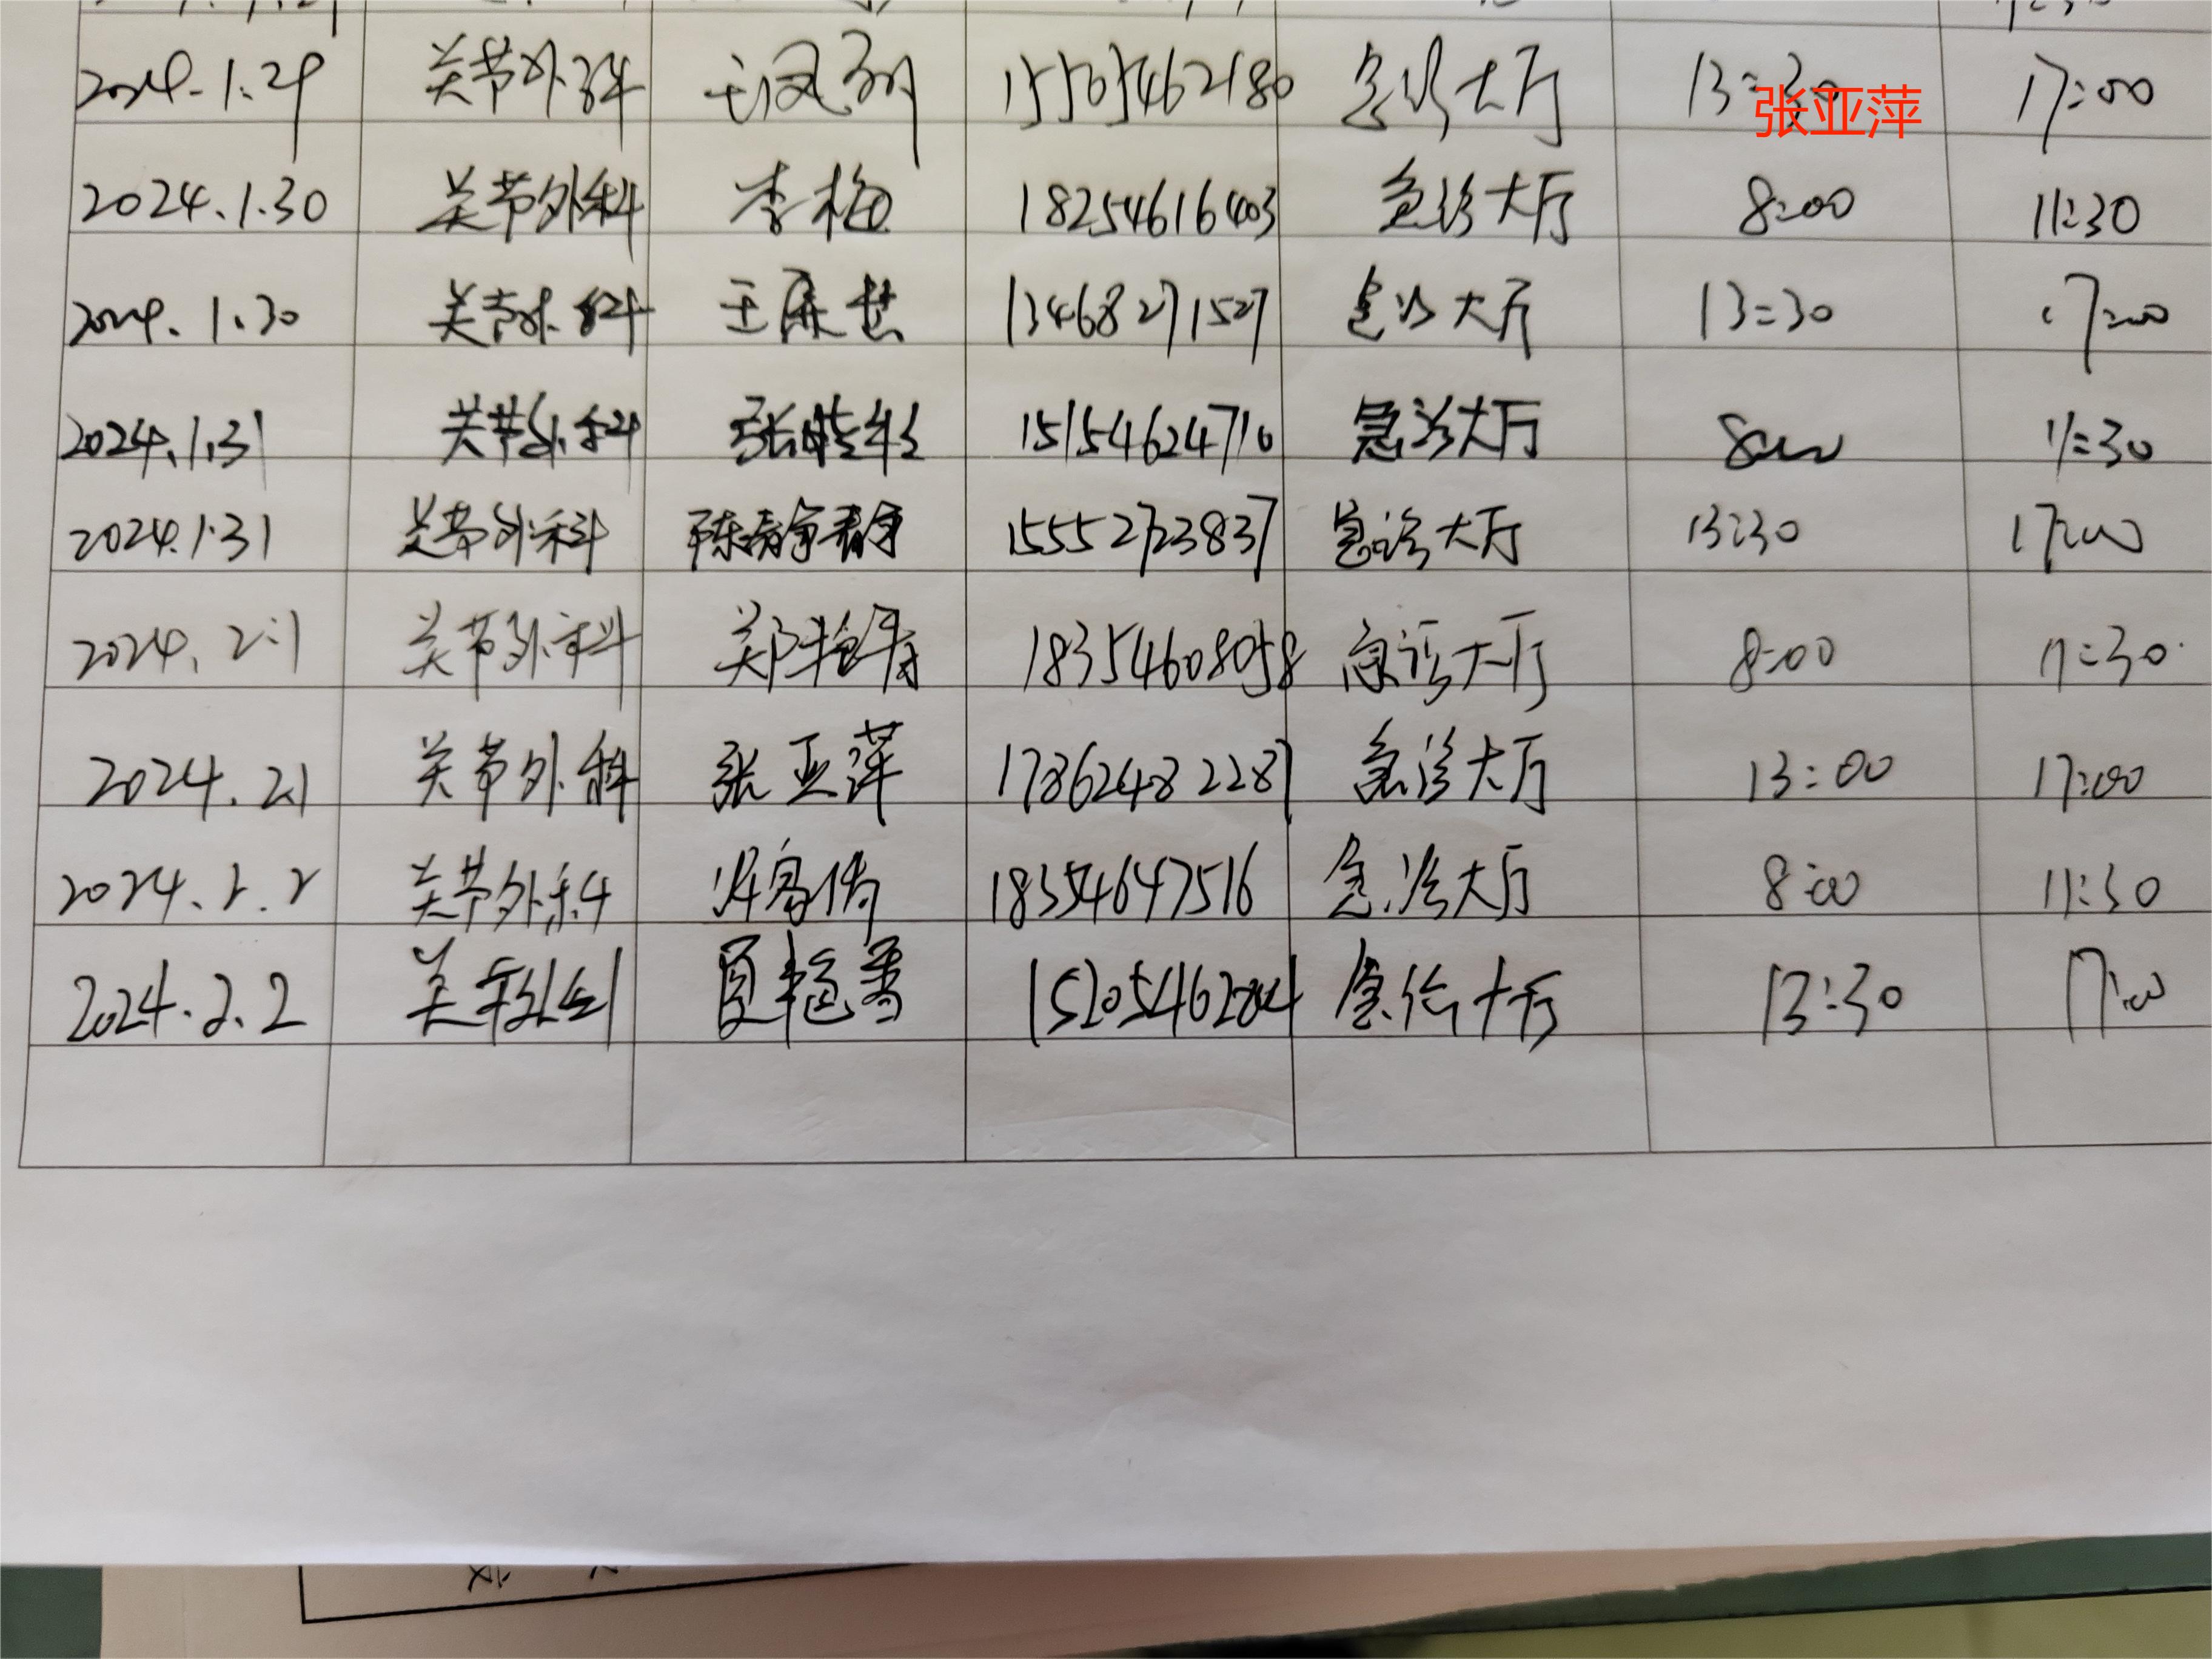 2024.1.29 关节外科 王凤 15505462180 急诊大厅 13:30 17:00
张亚萍
2024.1.30 关节外科 李梅 18254616403 急诊大厅 8:00 11:30
2024.1.30 关节外科 王 13468271527 急诊大厅 13:30 17:00
2024.1.31 关节外科 张 15154624710 急诊大厅 8:00 11:30
2024.1.31 关节外科 陈静静 15552723837 急诊大厅 13:30 17:00
2024.2.1 关节外科 郑艳萍 18354608058 急诊大厅 8:00 11:30
2024.2.1 关节外科 张亚萍 17862482287 急诊大厅 13:00 17:00
2024.2.2 关节外科 18354647516 急诊大厅 8:00 11:30
2024.2.2 关节外科 夏艳 急诊大厅 13:30 17:00